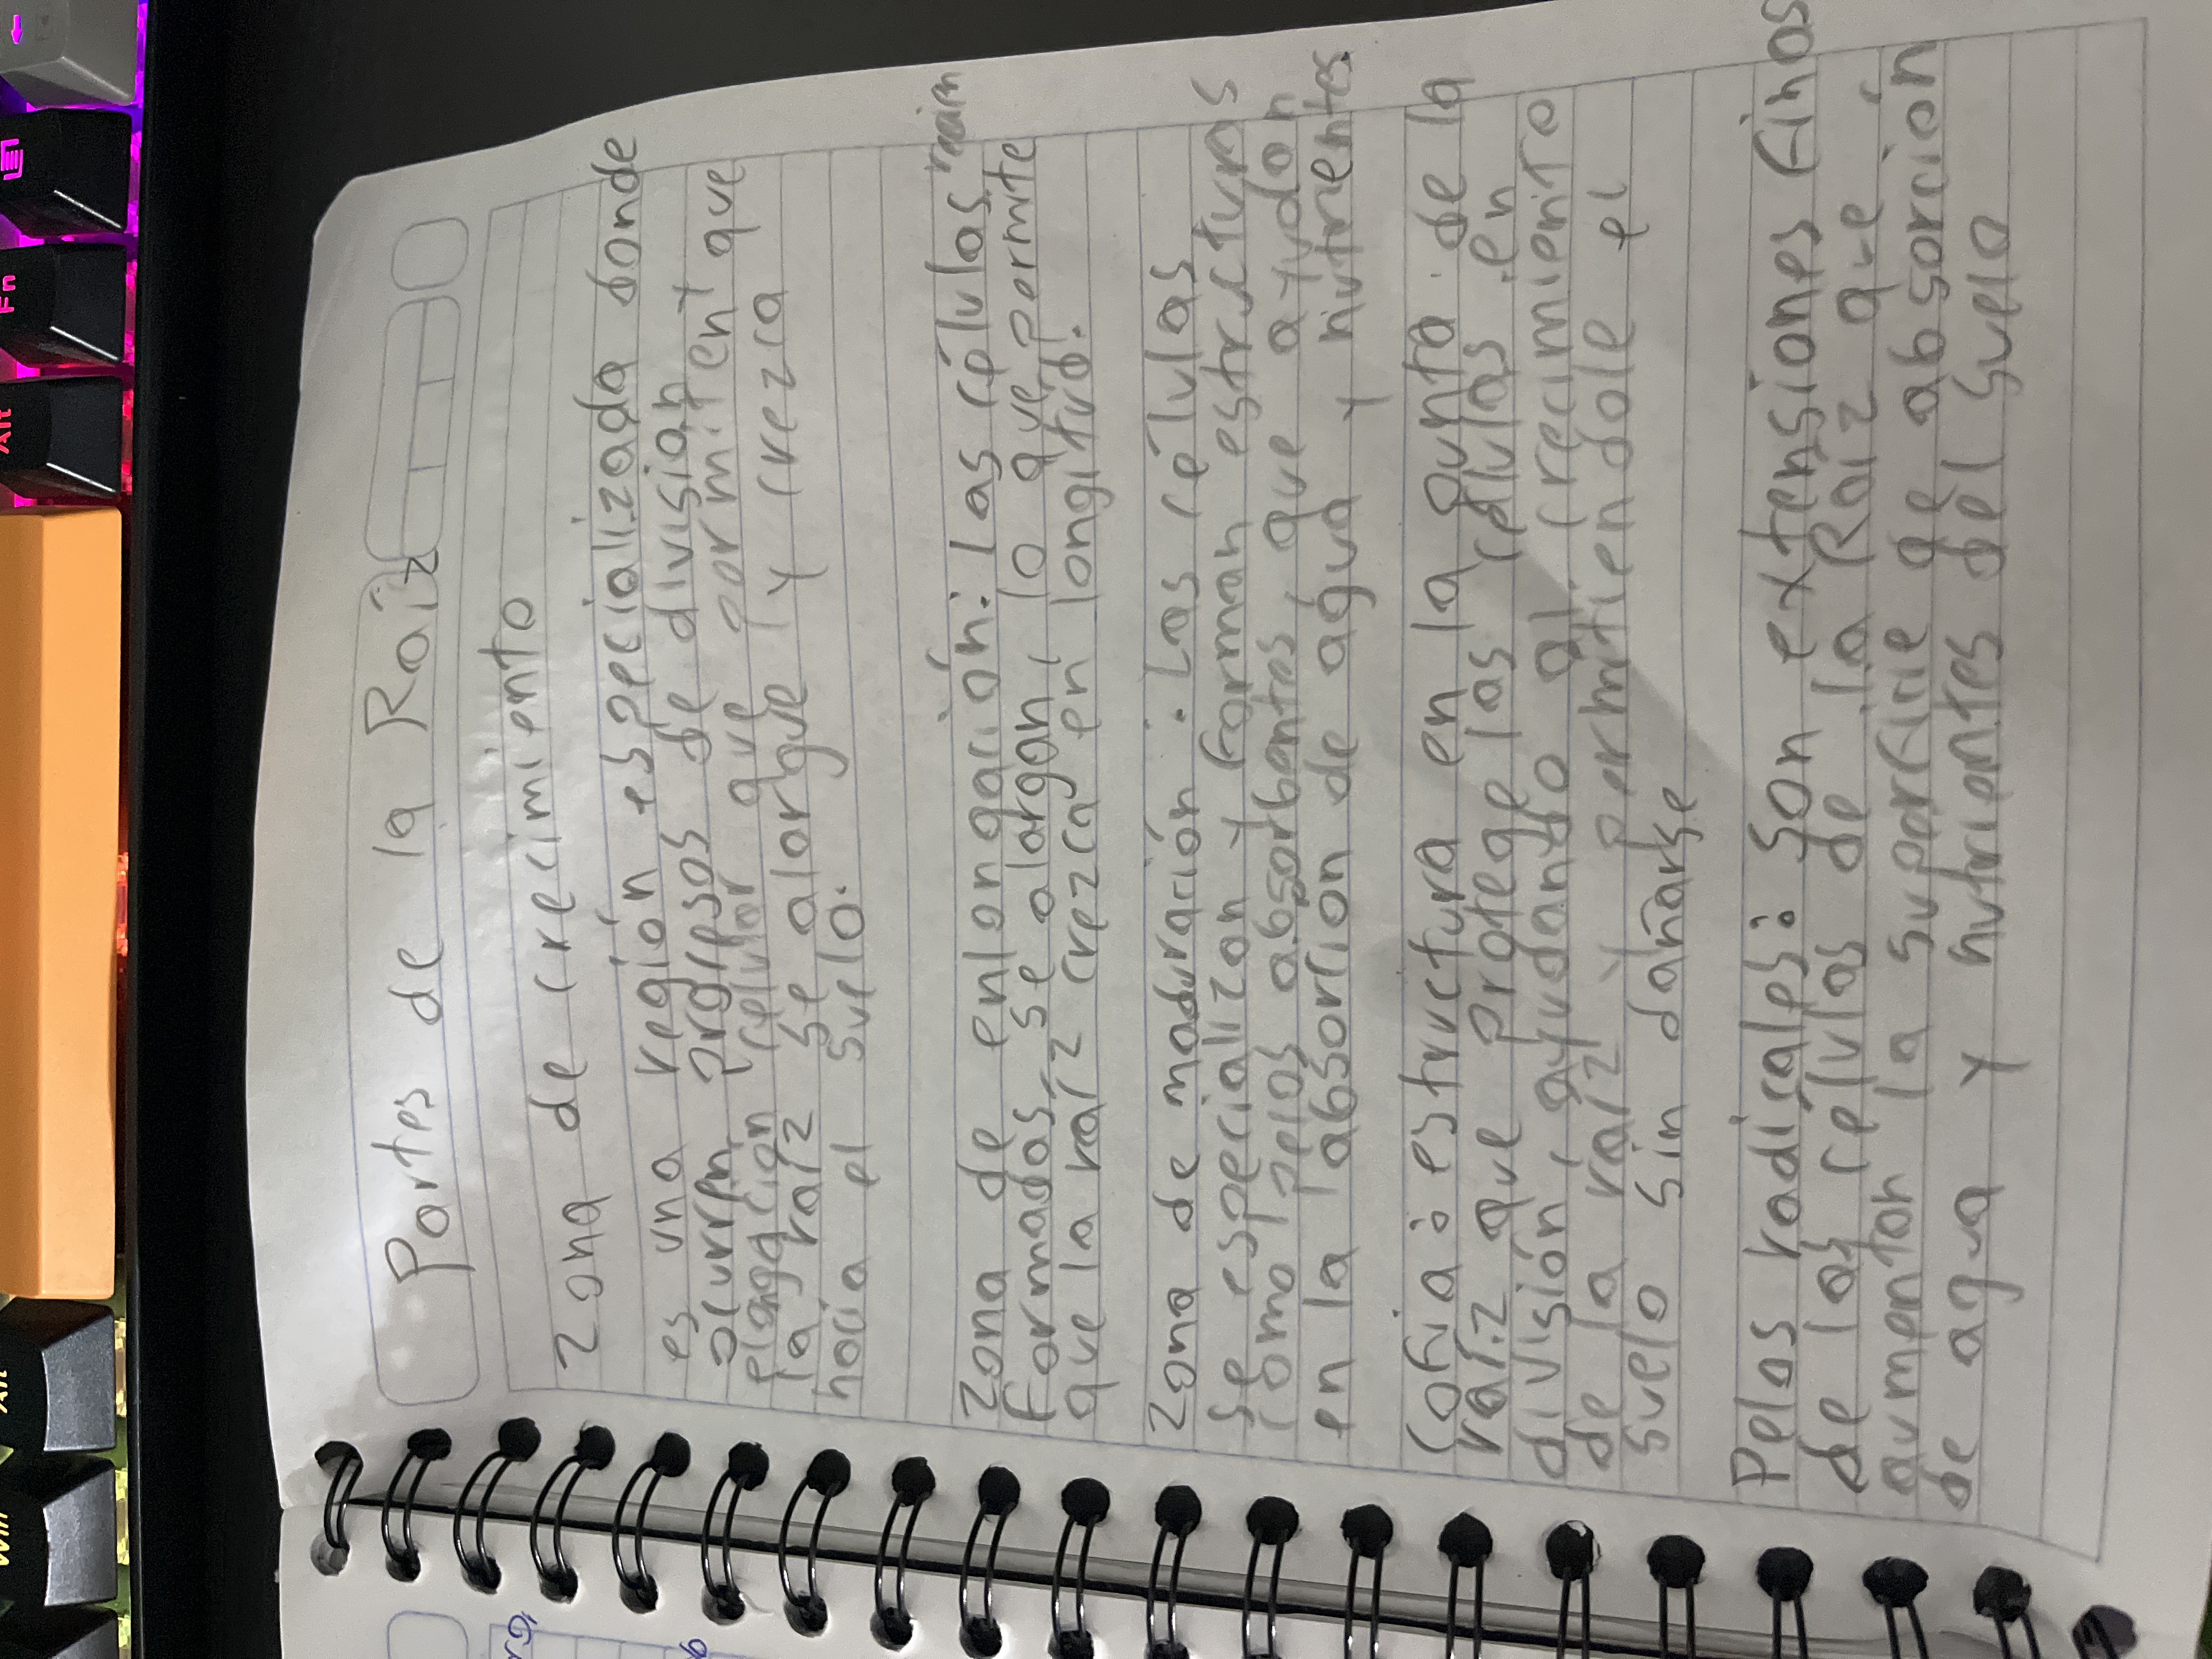 Partes de la Raíz
Zona de crecimiento
es una región especializada donde
ocurren procesos de división y
elongación celular que permitent que
la raíz se alorgue y crezca
hacia el suelo.
Zona de enlongación: Las células recién
formadas se alargan, lo que permite
que la raíz crezca en longitud.
Zona de maduración: Las células
se especializan y forman estructuras
como pelos absorbentes, que ayudan
en la absorción de agua y nutrientes
Cofia: estructura en la punta de la
raíz que protege las células en
división, ayudando al crecimiento
de la raíz y permitiendole el
suelo sin dañarse
Pelos radicales: Son extensiones finas
de las células de la Raíz que
aumentan la superficie de absorción
de agua y nutrientes del suelo
Alt
Fn
Alt
Win